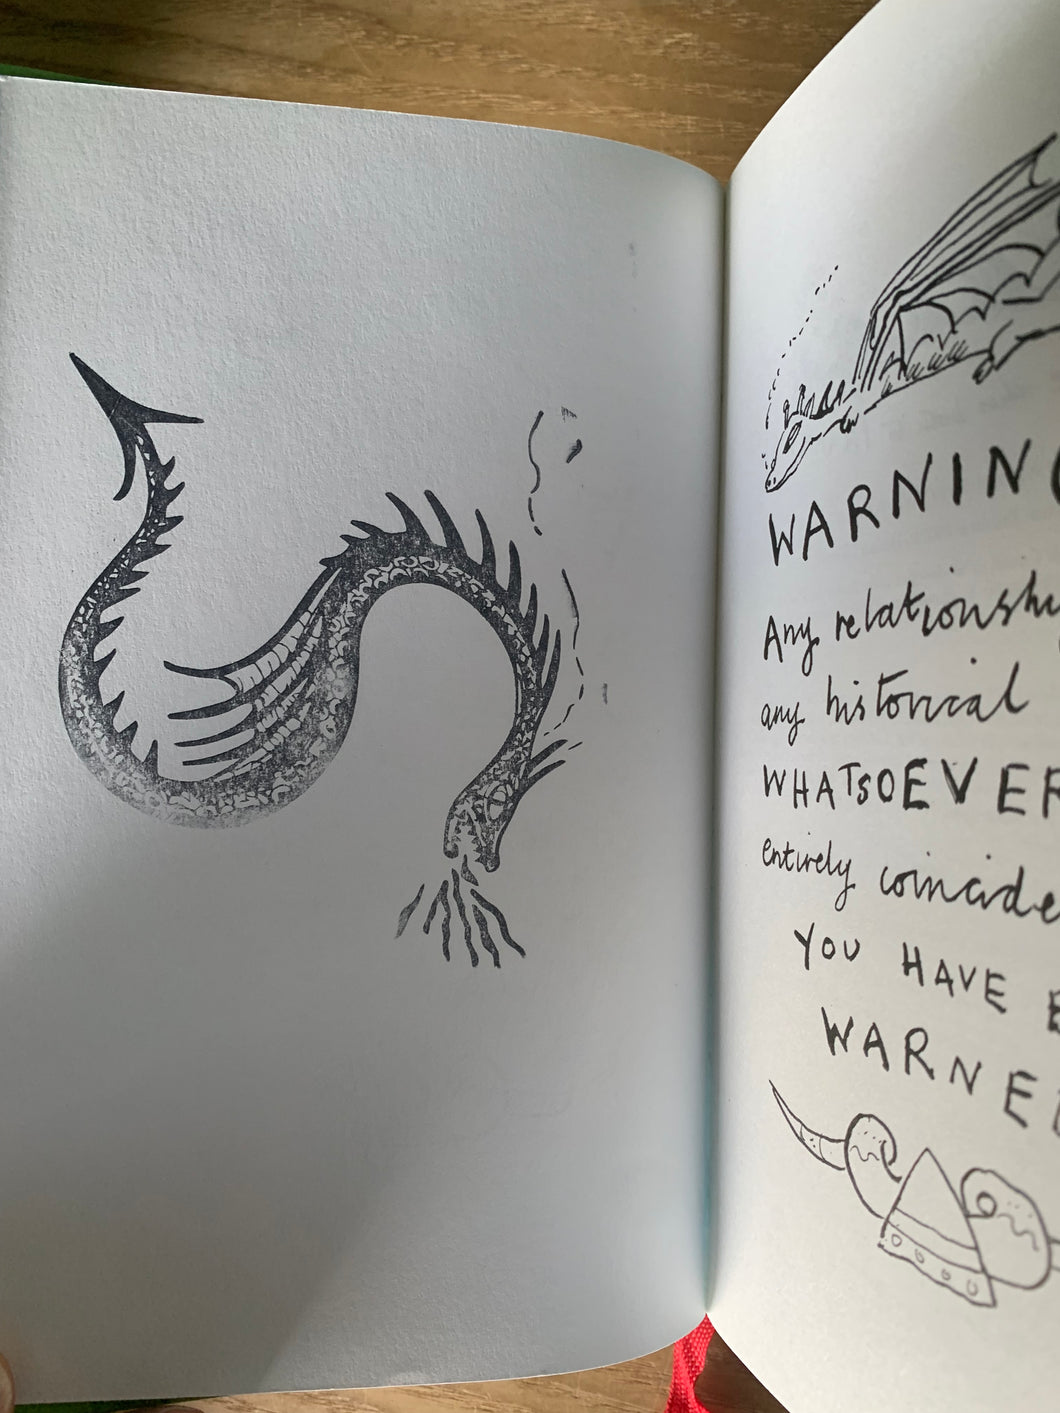 WARNING
Any relationshi
any historical
WHATSOEVER
entirely coincide
YOU HAVE B
WARNED